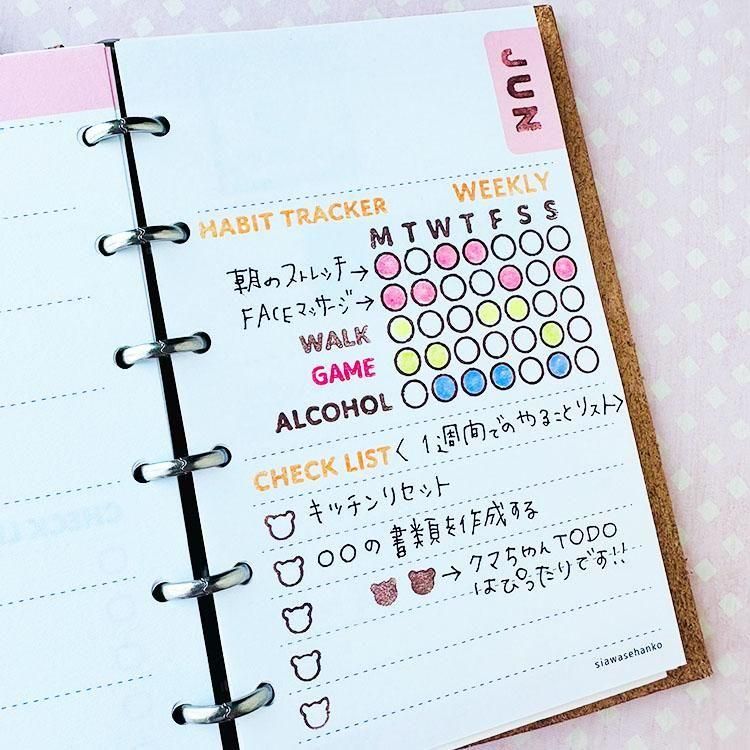 JUN
WEEKLY
HABIT TRACKER
M T W T F S S
朝のストレッチ→
FACEマッサージ→
WALK
GAME
ALCOHOL
CHECK LIST <1週間でのやることリスト>
キッチンリセット
○○の書類を作成する
→クマちゃんTODO
はぴったりです!!
siawasehanko